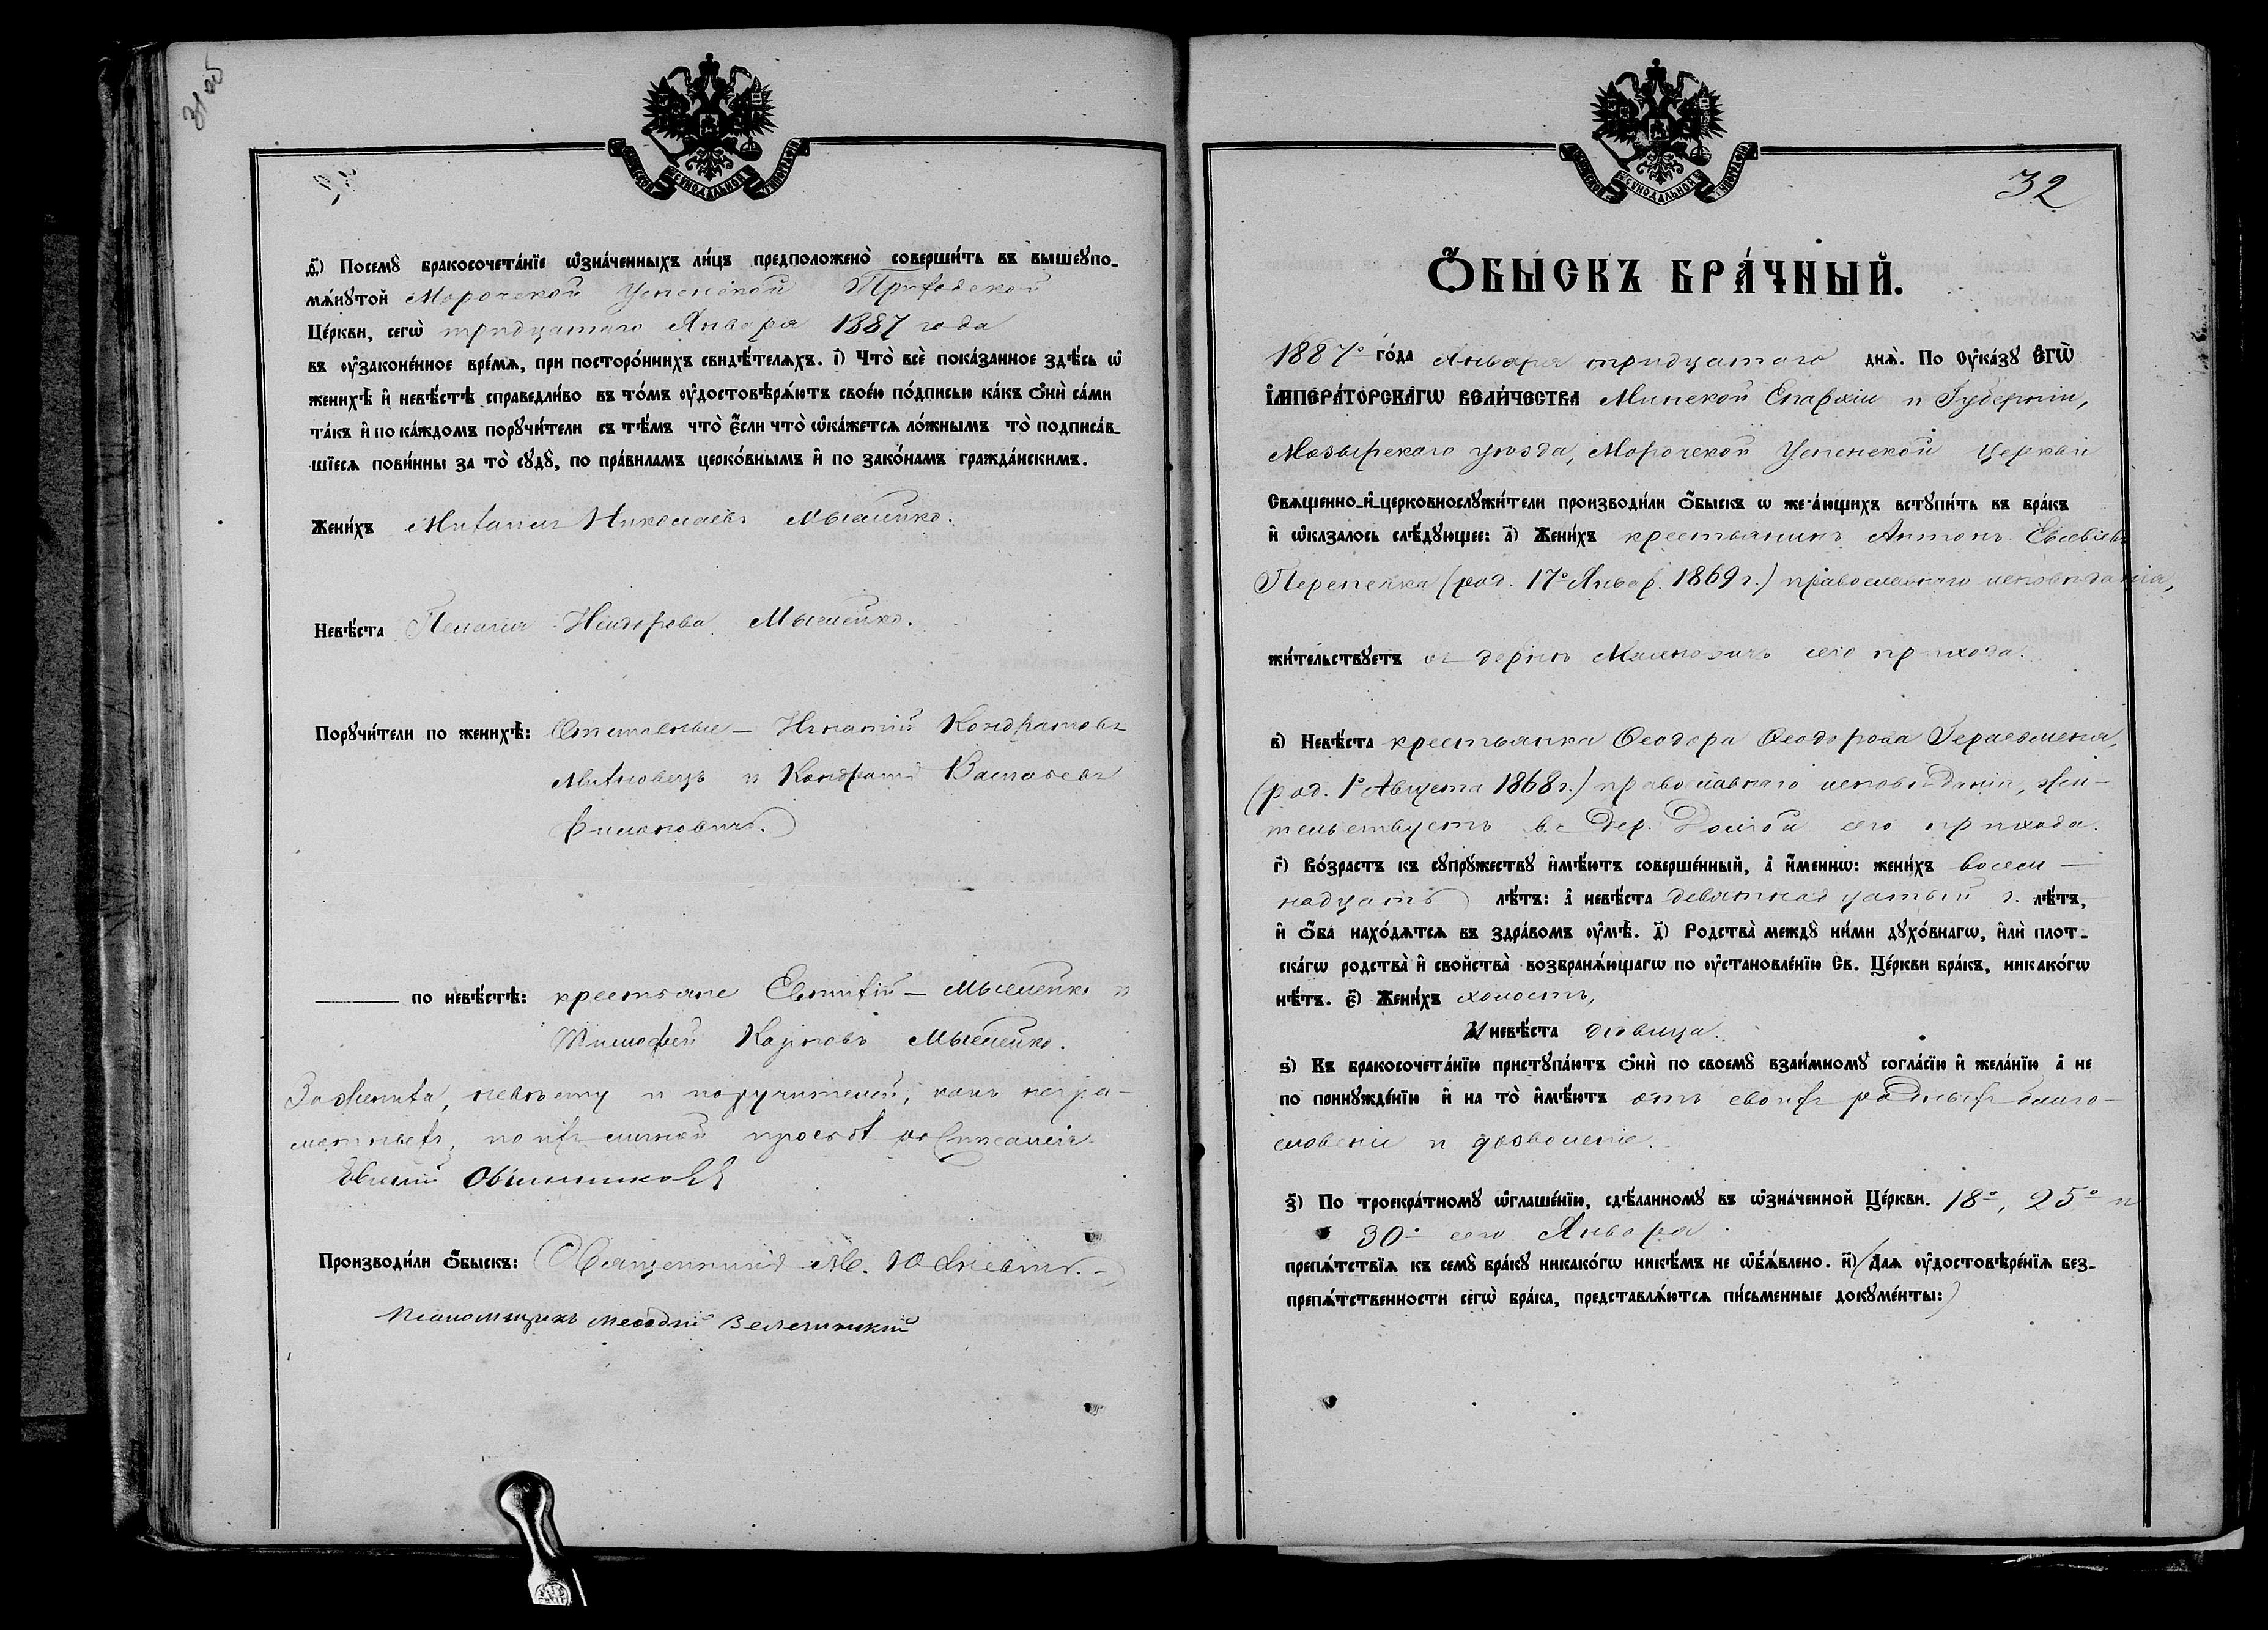 31 об
ѳ҃) Посемꙋ бракосочета́нїе ѡ҆зна́ченныхъ ли́цъ предположено̀ соверши́ть въ вышеꙋпо-
мѧ́нꙋтой Морочской Успенской Приходской
Це́ркви, сегѡ̀ тридцатаго Января 1887 года
въ ᲂу҆законе́нное вре́мѧ, при посторо́ннихъ свидѣ́телѧхъ. і҃) Что̀ всѐ пока́занное здѣ́сь ѡ҆
женихѣ̀ и҆ невѣ́стѣ справедли́во въ то́мъ ᲂу҆достовѣрѧ́ютъ свое́ю по́дписью ка́къ ѻ҆нѝ са́ми
та́къ и҆ по ка́ждомъ порꙋчи́тели съ тѣ́мъ что̀ є҆́сли что̀ ѡ҆ка́жетсѧ ло́жнымъ то̀ подписа́в-
шїесѧ пови́нны за то̀ сꙋдꙋ̀, по пра́виламъ церко́внымъ и҆ по зако́намъ гражда́нскимъ.
Жени́хъ Михаилъ Николаевъ Мысливко.
Невѣ́ста Пелагия Исидорова
Порꙋчи́тели по женихѣ̀: Игнатій Кондратовъ
Михновецъ и Кондратъ
Филиповичъ.
по невѣ́стѣ: крестьяне Евтихій
Тимофей Карповъ
За жениха, невѣсту и поручителей, какъ негра-
мотныхъ, по ихъ личной просьбѣ росписался
Производи́ли ѻ҆́быскъ: Священникъ
Псаломщикъ Меѳодій
32
Ѻ҆́быскъ бра́чный.
1887-го го́да Января тридцатаго днѧ̀. По ᲂу҆ка́зꙋ Є҆гѡ̀
І҆мпера́торскагѡ вели́чества Минской Епархіи и Губерніи,
Мозырскаго уѣзда, Морочской Успенской Церкви
Свѧщенно-и҆-церковнослꙋжи́тели производи́ли ѻ҆́быскъ ѡ же а́ющихъ встꙋпи́ть въ бра́къ
и҆ ѡ҆казалось слѣ́дꙋющее: а҃) Жени́хъ крестьянинъ Антонъ Евсевіевъ
Перепечка (род. 17-го Январ. 1869 г.) православнаго исповѣданія,
жи́тельствꙋетъ въ дерев. сего прихода.
в҃) Невѣ́ста крестьянка Ѳеодора Ѳеодорова Герасименя,
(род. 1-го Августа 1868 г.) православнаго исповѣданія, жи-
тельствуетъ въ дер. Долгой сего прихода.
г҃) Во́зрастъ къ сꙋпрꙋ́жествꙋ и҆мѣ́ютъ соверше́нный, а҆ и҆́меннѡ: жени́хъ восем-
надцать лѣ́тъ: а҆ невѣ́ста девятнадцатый г. лѣ́тъ,
и҆ ѻ҆́ба нахо́дѧтсѧ въ здра́вомъ ᲂу҆мѣ̀. д҃) Родства̀ междꙋ̀ ни́ми дꙋхо́внагѡ, и҆лѝ плот-
ска́гѡ родства̀ и҆ сво́йства̀ возбранѧ́ющагѡ по ᲂу҆становле́нїю Св. Це́ркви бра́къ, никако́гѡ
нѣ́тъ. є҃) Жени́хъ холостъ,
И невѣ́ста дѣвица.
ѕ҃) Къ бракосочета́нїю пристꙋпа́ютъ ѻ҆нѝ по своемꙋ̀ взаи́мномꙋ согла́сїю и҆ жела́нїю а҆ не
по принꙋжде́нїю и҆ на то̀ и҆мѣ́ютъ отъ своихъ родныхъ благо-
словеніе и дозволеніе.
з҃) По троекра́тномꙋ ѡ҆глаше́нїю, сдѣ́ланномꙋ въ ѡ҆зна́ченной Це́ркви. 18-го, 25-го и
30-го сего Января
препѧ́тствїѧ къ семꙋ̀ бра́кꙋ никако́гѡ никѣ́мъ не ѡ҆б̾ѧ́влено. и҃) (Длѧ ᲂу҆достовѣре́нїѧ без-
препѧ́тственности сегѡ̀ бра́ка, представлѧ́ютсѧ пи́сьменные докꙋме́нты:)